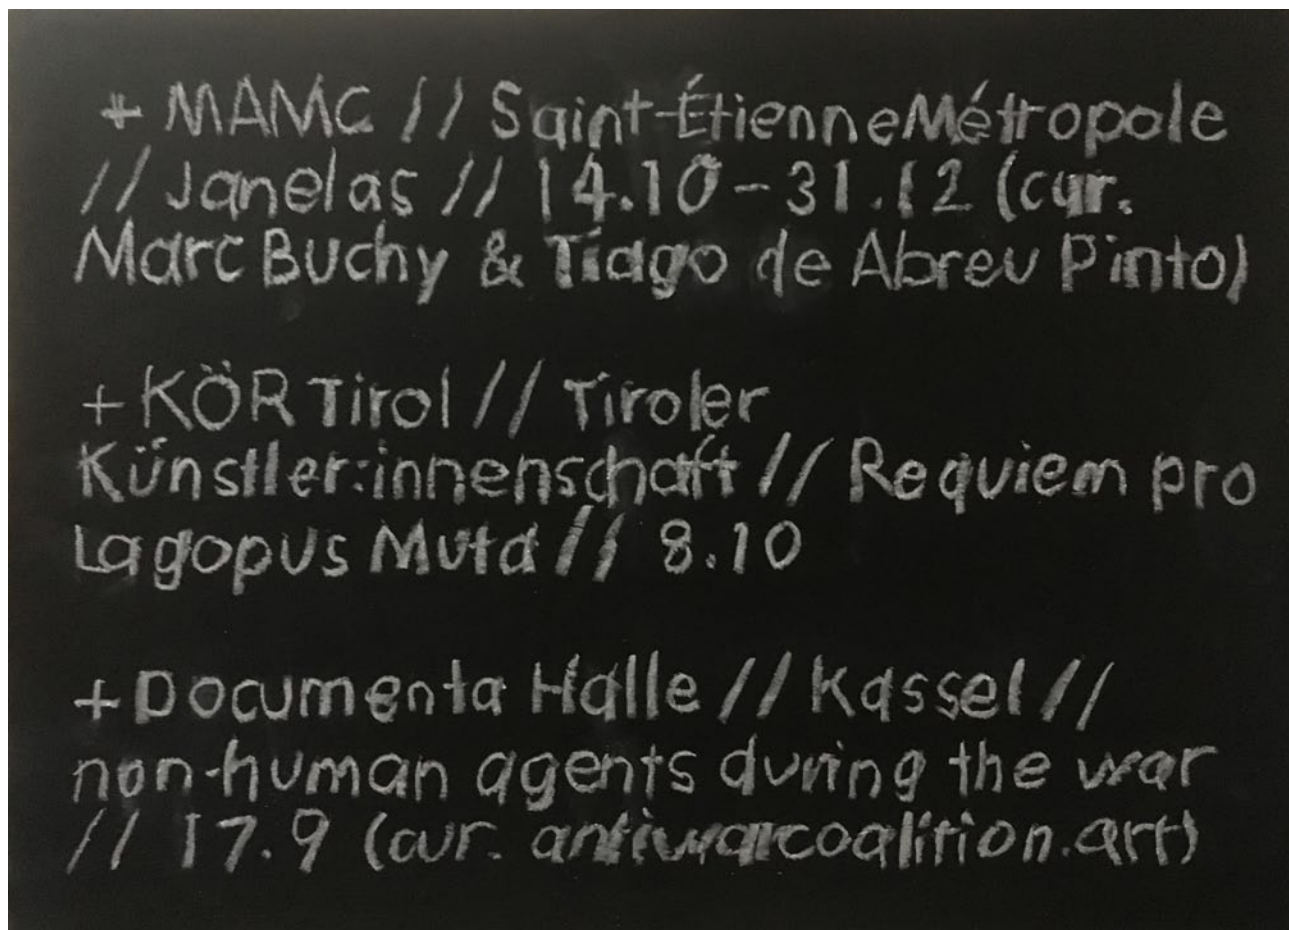 + MAMC // Saint-Étienne Métropole
// Janelas // 14.10 – 31.12 (cur.
Marc Buchy & Tiago de Abreu Pinto)
+ KÖR Tirol // Tiroler
Künstler:innenschaft // Requiem pro
Lagopus Muta // 8.10
+ Documenta Halle // Kassel //
non-human agents during the war
// 17.9 (cur. antiwarcoalition.art)